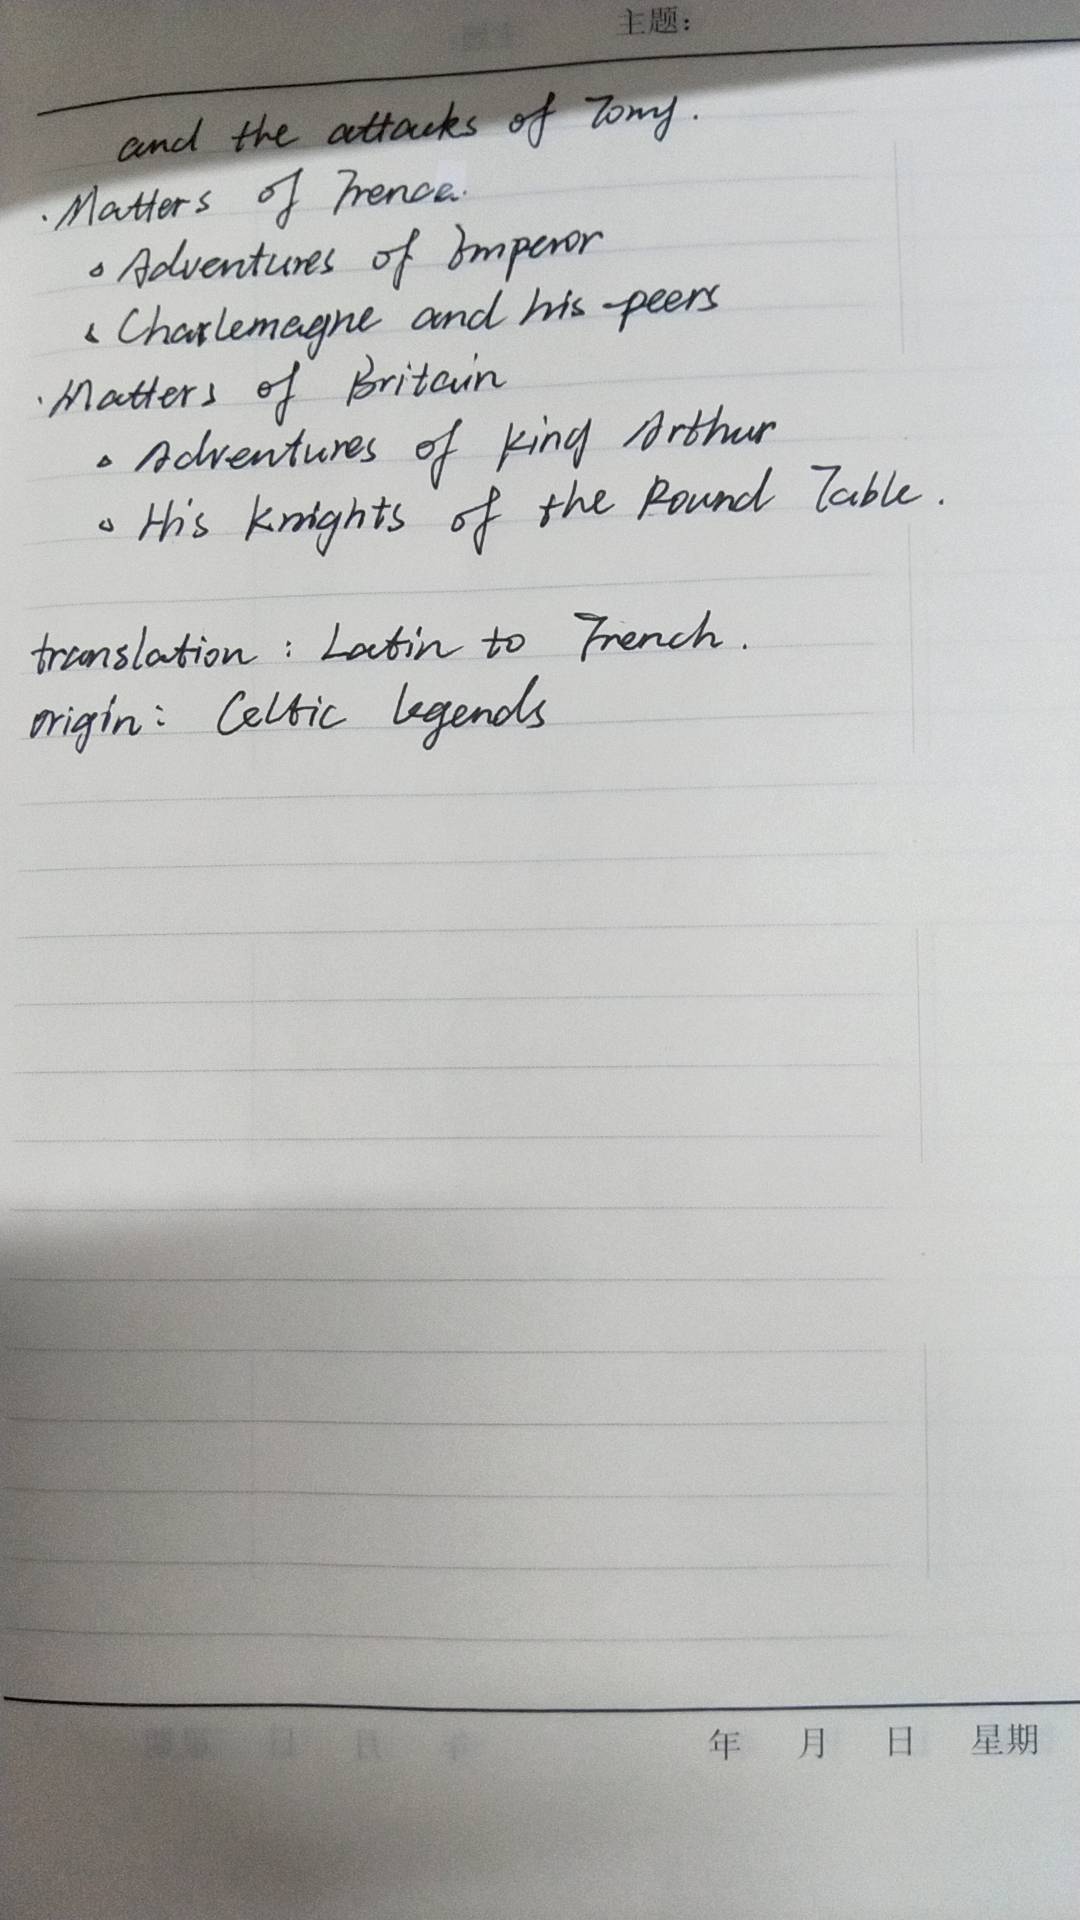 主题:
and the attacks of Tomy.
· Matters of Frence.
∘ Adventures of Emperor
∘ Charlemagne and his peers
· Matters of Britain
∘ Adventures of King Arthur
∘ His Knights of the Round Table.
translation : Latin to French.
origin: Celtic legends
年 月 日 星期